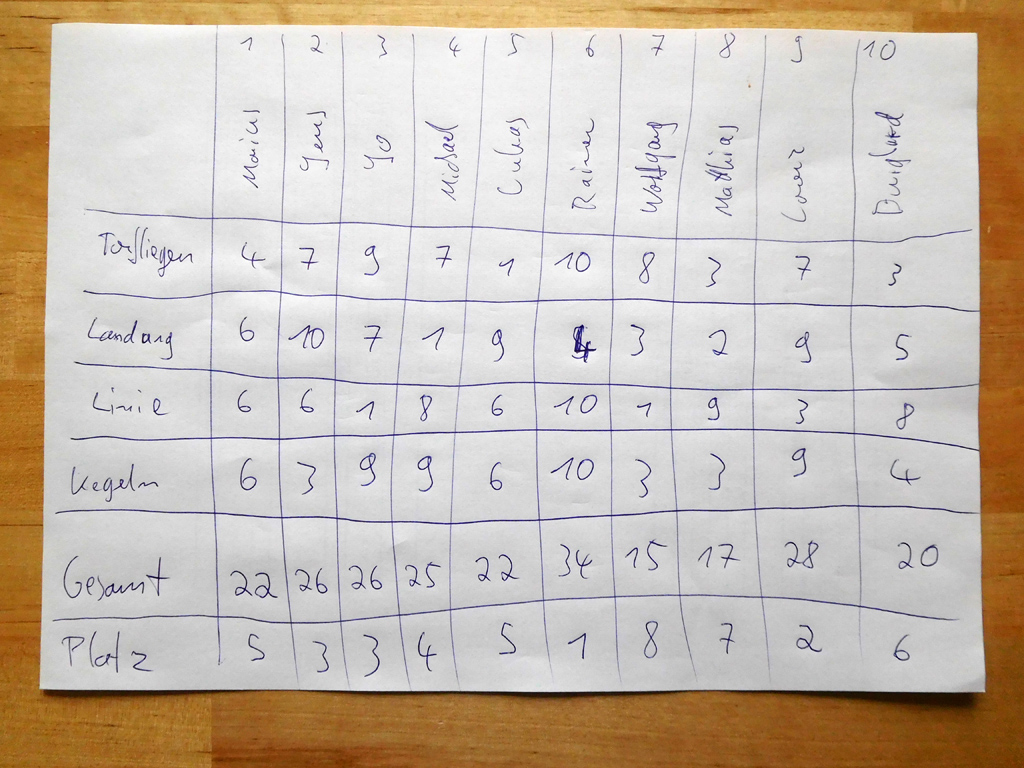 1 2 3 4 5 6 7 8 9 10
Marius Jens Jo Michael Lukas Rainer Wolfgang Matthias Burghard
Torfliegen 4 7 9 7 1 10 8 3 7 3
Landung 6 10 7 1 9 4 3 2 9 5
Linie 6 6 1 8 6 10 1 9 3 8
Kegeln 6 3 9 9 6 10 3 3 9 4
Gesamt 22 26 26 25 22 34 15 17 28 20
Platz 5 3 3 4 5 1 8 7 2 6